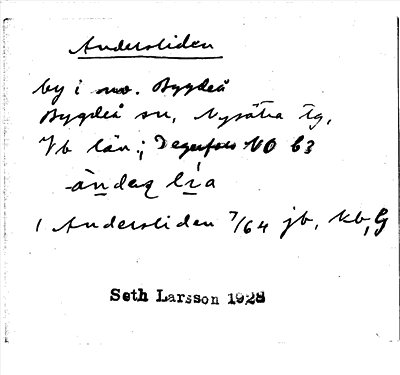 Andersliden
by i nv. Bygdeå
Bygdeå sn, Nysätra tg,
Vb län; Degerfors NO b3
-ändaq lia
1 Andersliden 7/64 jb, kb, G
Seth Larsson 1928